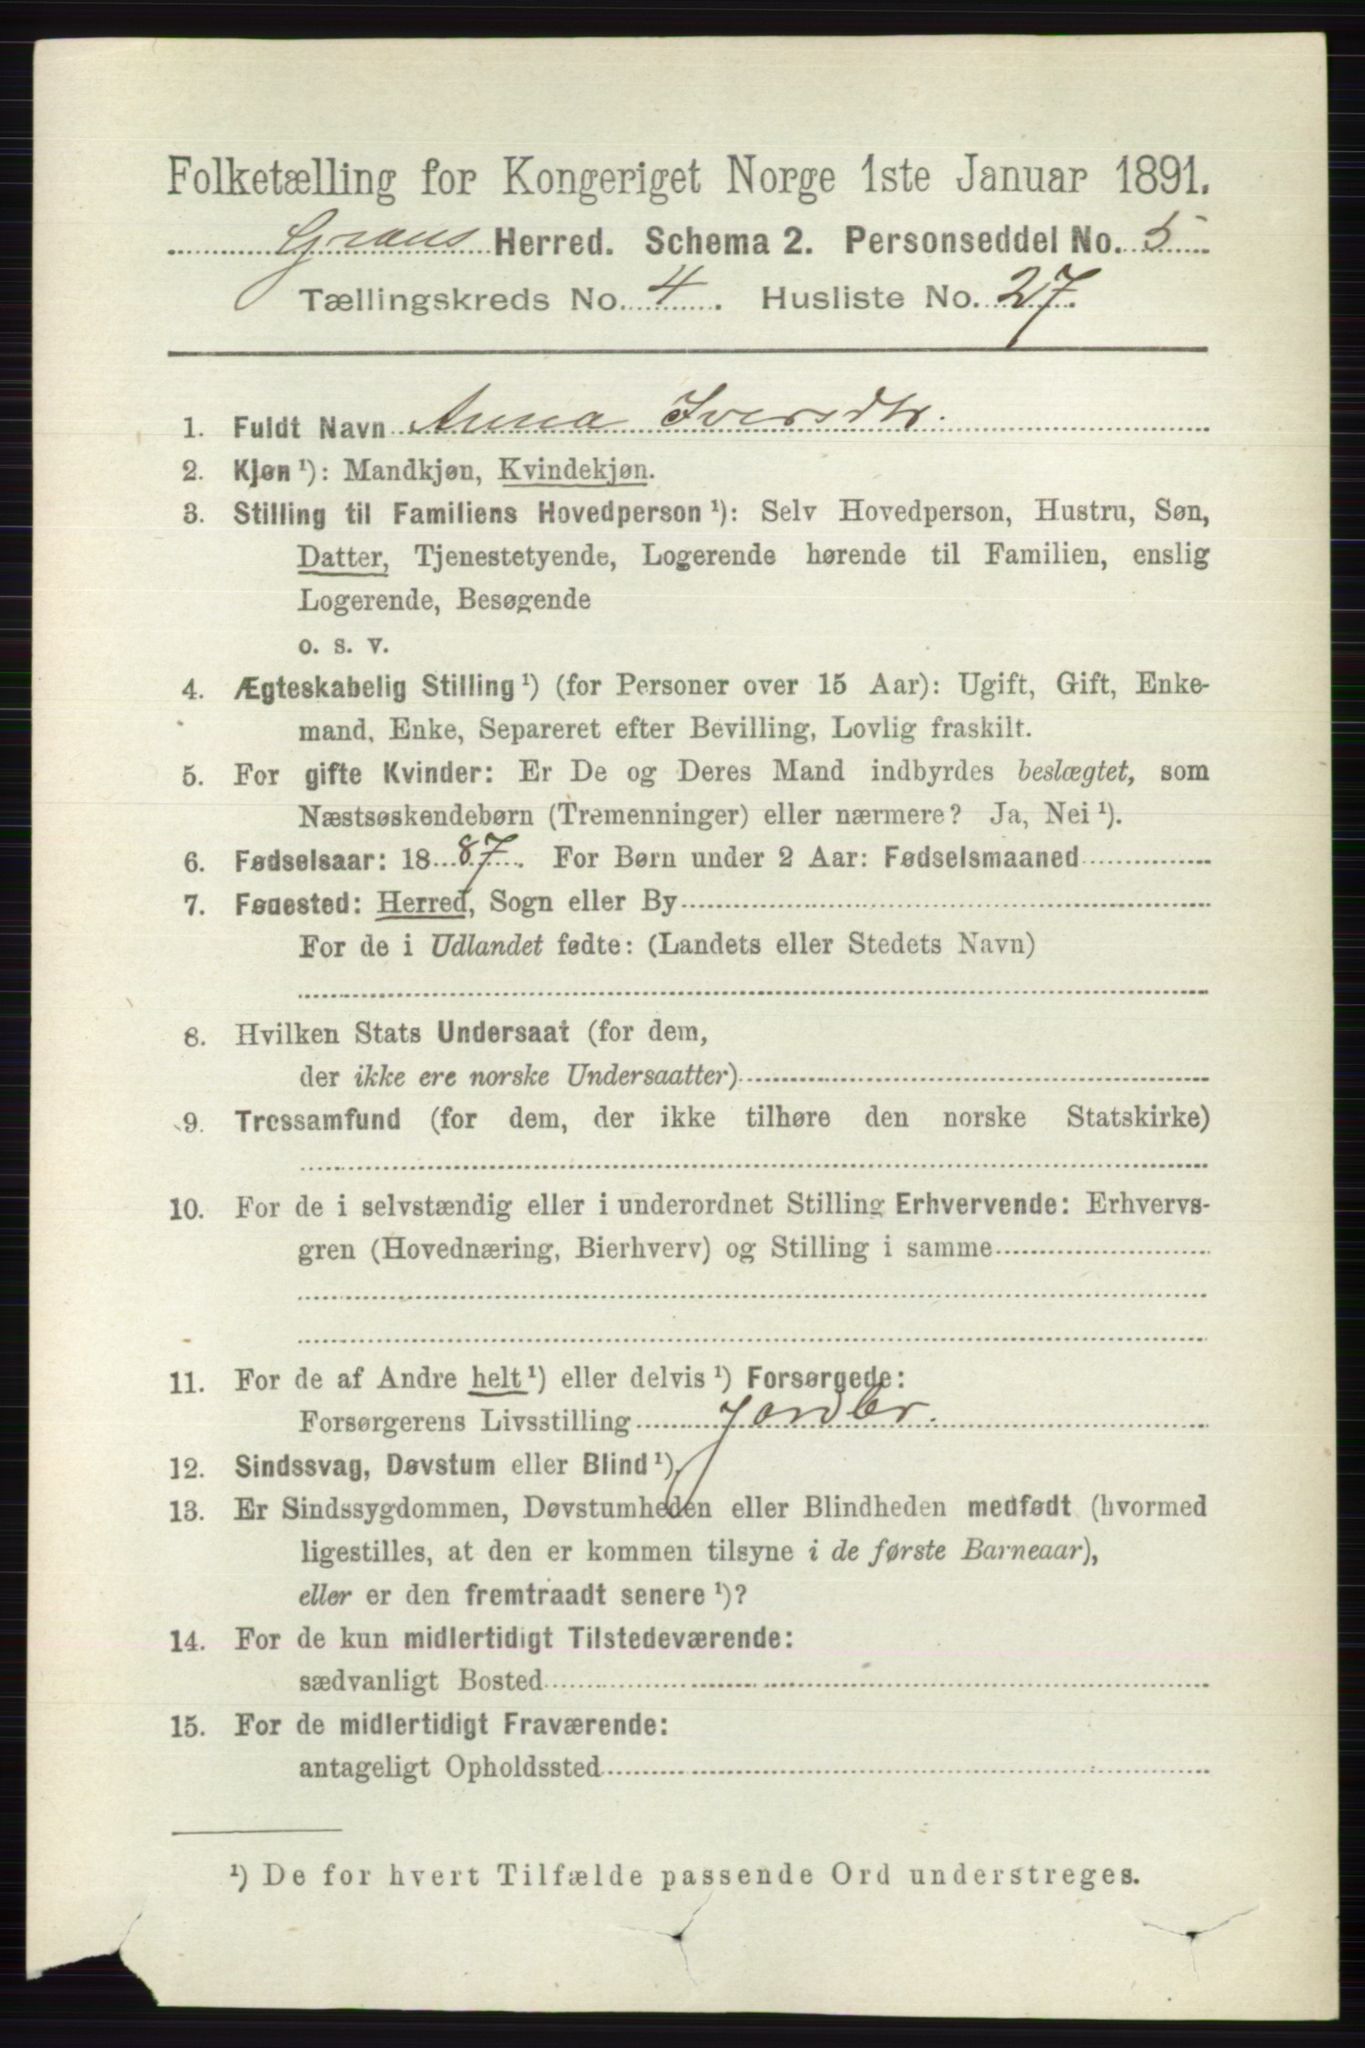 Folketælling for Kongeriget Norge 1ste Januar 1891.
Grans Herred. Schema 2. Personseddel No. 5
Tællingskreds No. 4. Husliste No. 27.
1. Fuldt Navn Anna Iversdtr.
2. Kjøn ¹): Mandkjøn, Kvindekjøn.
3. Stilling til Familiens Hovedperson ¹): Selv Hovedperson, Hustru, Søn,
Datter, Tjenestetyende, Logerende hørende til Familien, enslig
Logerende, Besøgende
o. s. v.
4. Ægteskabelig Stilling ¹) (for Personer over 15 Aar): Ugift, Gift, Enke-
mand, Enke, Separeret efter Bevilling, Lovlig fraskilt.
5. For gifte Kvinder: Er De og Deres Mand indbyrdes beslægtet, som
Næstsøskendebørn (Tremenninger) eller nærmere? Ja, Nei ¹).
6. Fødselsaar: 1887. For Børn under 2 Aar: Fødselsmaaned
7. Fødested: Herred, Sogn eller By
For de i Udlandet fødte: (Landets eller Stedets Navn)
8. Hvilken Stats Undersaat (for dem,
der ikke ere norske Undersaatter)
9. Trossamfund (for dem, der ikke tilhøre den norske Statskirke)
10. For de i selvstændig eller i underordnet Stilling Erhvervende: Erhvervs-
gren (Hovednæring, Bierhverv) og Stilling i samme
11. For de af Andre helt ¹) eller delvis ¹) Forsørgede:
Forsørgerens Livsstilling Jordbr.
12. Sindssvag, Døvstum eller Blind ¹).
13. Er Sindssygdommen, Døvstumheden eller Blindheden medfødt (hvormed
ligestilles, at den er kommen tilsyne i de første Barneaar),
eller er den fremtraadt senere ¹)?
14. For de kun midlertidigt Tilstedeværende:
sædvanligt Bosted
15. For de midlertidigt Fraværende:
antageligt Opholdssted
¹) De for hvert Tilfælde passende Ord understreges.